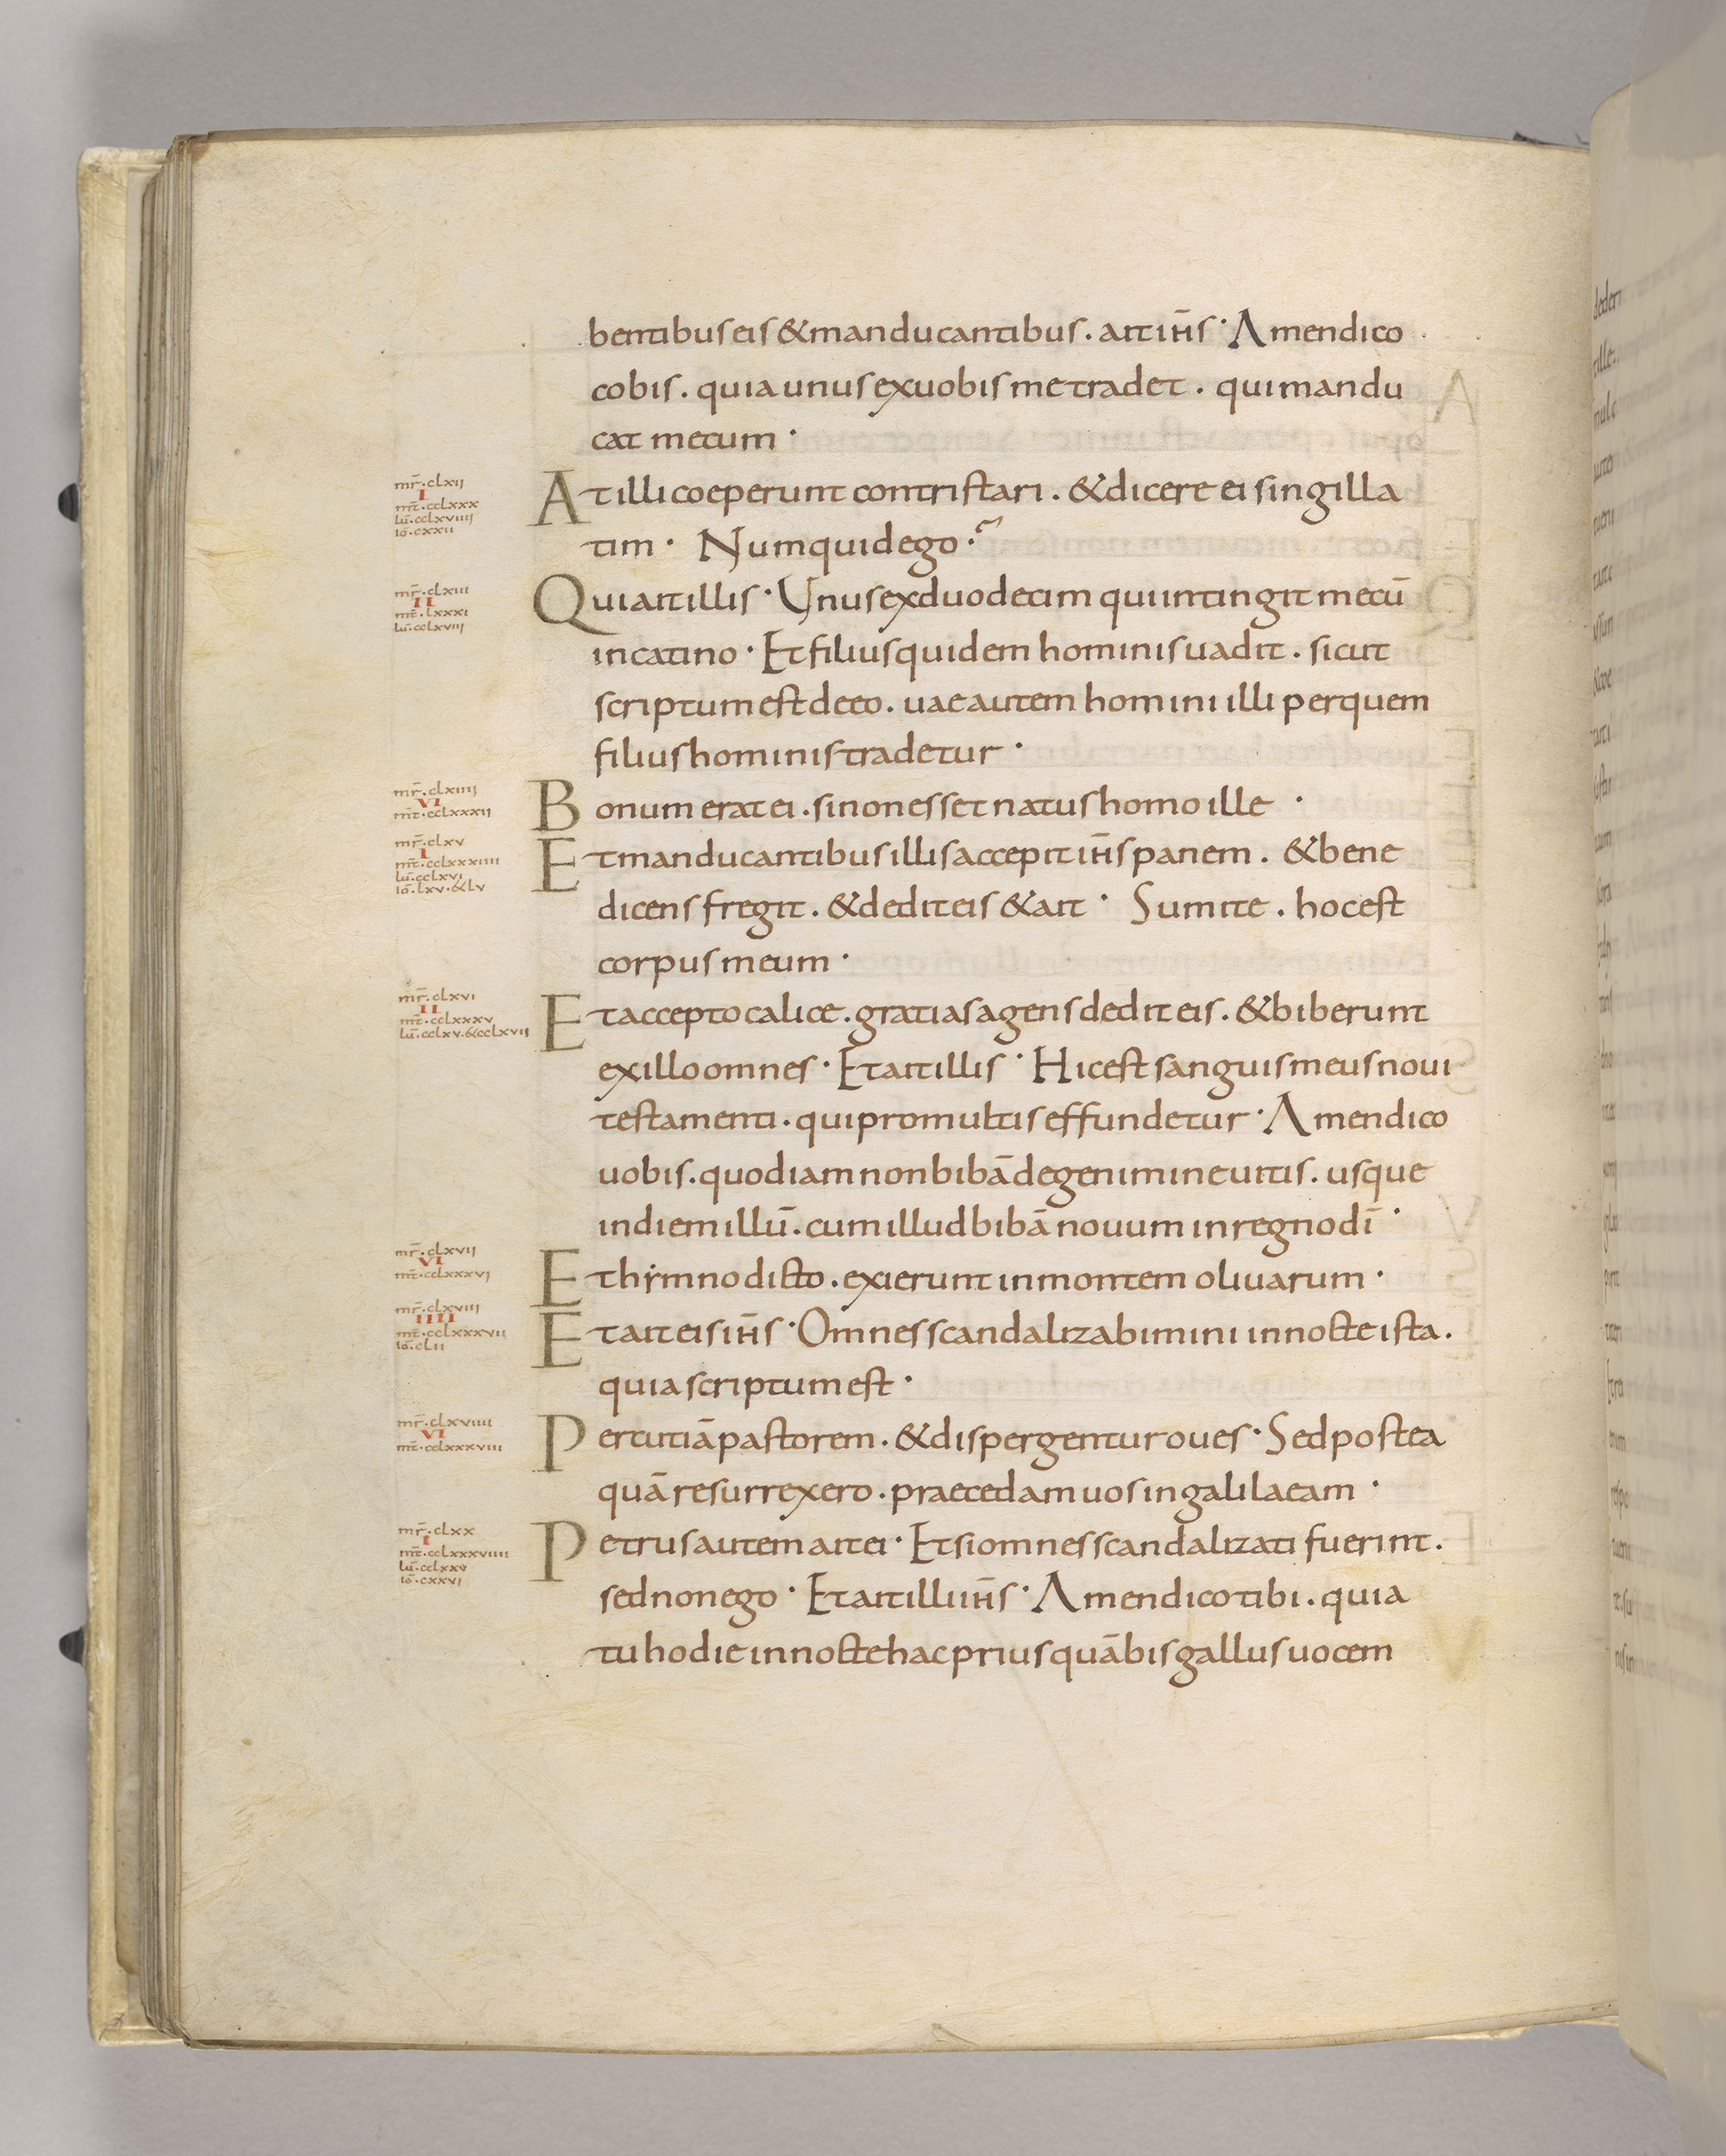 bentibus eis & manducantibus. ait ih̄s· Amen dico
cobis. quia unus ex uobis me tradet. qui mandu
cat mecum·
mr̄·clxii
I
mt̄·cclxxx
lū·cclxviiii
iō·cxxii
At illi coeperunt contristari. & dicere ei singilla
tim· Numquid ego·?
mr̄·clxiii
II
mt̄·lxxxi
lū·cclxviii
Qui ait illis· Unus ex duodecim qui intingit mecū
in catino· Et filius quidem hominis uadit. sicut
scriptum est de eo. uae autem homini illi per quem
filius hominis tradetur·
mr̄·clxiiii
VI
mt̄·cclxxxii
Bonum erat ei. si non esset natus homo ille·
mr̄·clxv
I
mt̄·cclxxxiiii
lū·cclxvi
iō·lxv·&lv
Et manducantibus illis accepit ih̄s panem. & bene
dicens fregit. & dedit eis & ait· Sumite. hoc est
corpus meum·
mr̄·clxvi
II
mt̄·cclxxxv
lū·cclxv·&cclxvii
Et accepto calice. gratias agens dedit eis. & biberunt
ex illo omnes· Et ait illis· Hic est sanguis meus noui
testamenti. qui pro multis effundetur· Amen dico
uobis. quod iam non bibā de genimine uitis. usque
in diem illū. cum illud bibā nouum in regno dī·
mr̄·clxvii
VI
mt̄·cclxxxvi
Et hẏmno dicto. exierunt in montem oliuarum·
mr̄·clxviii
IIII
mt̄·cclxxxvii
iō·clii
Et ait eis ih̄s· Omnes scandalizabimini in nocte ista.
quia scriptum est·
mr̄·clxviiii
VI
mt̄·cclxxxviii
Percutiā pastorem. & dispergentur oues· Sed postea
quā resurrexero. praecedam uos in galilaeam·
mr̄·clxx
I
mt̄·cclxxxviiii
lū·cclxxv
iō·cxxvi
Petrus autem ait ei· Et si omnes scandalizati fuerint.
sed non ego· Et ait illi ih̄s· Amen dico tibi. quia
tu hodie in nocte hac prius quā bis gallus uocem